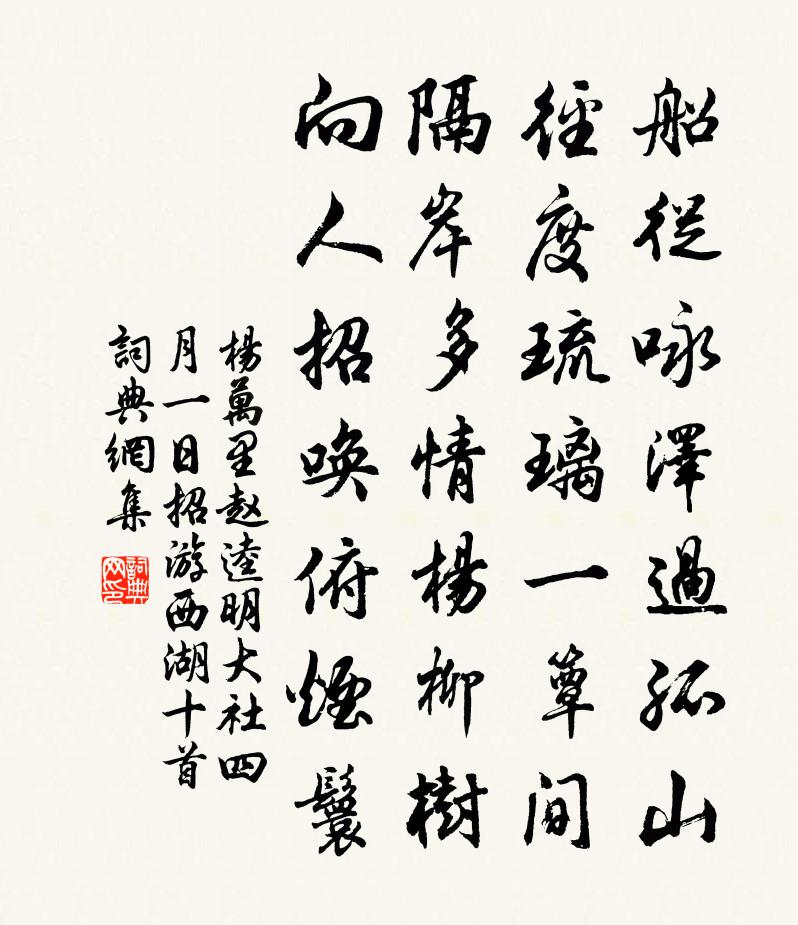 船從咏澤過孤山
徑度琉璃一簟間
隔岸多情楊柳樹
向人招喚俯煙鬟
楊萬里赵逵明大社四
月一日招游西湖十首
詞典網集
詞典网印